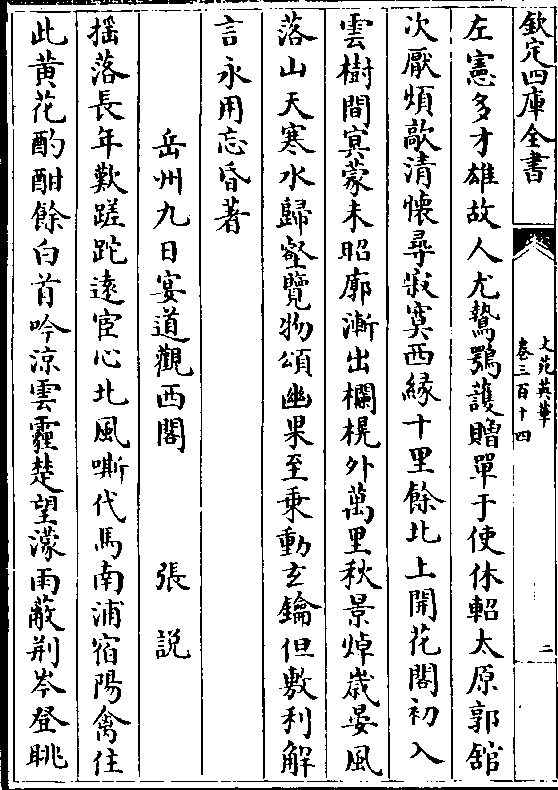 欽定四庫全書
文苑英華
卷三百十四
二
左憲多才雄故人尤鷙鶚護贈單于使休軺太原郭舘
次厭煩歊清懷尋寂寞西緣十里餘北上開花閣初入
雲樹間冥蒙未昭廓漸出欄榥外萬里秋景焯歲晏風
落山天寒水歸壑覽物頌幽果至乗動𤣥鑰但敷利解
言永用忘昏著
岳州九日宴道觀西閣
張説
揺落長年歎蹉跎逺宦心北風嘶代馬南浦宿陽禽住
此黄花酌酣餘白首吟凉雲霾楚望濛雨蔽荆岑登眺